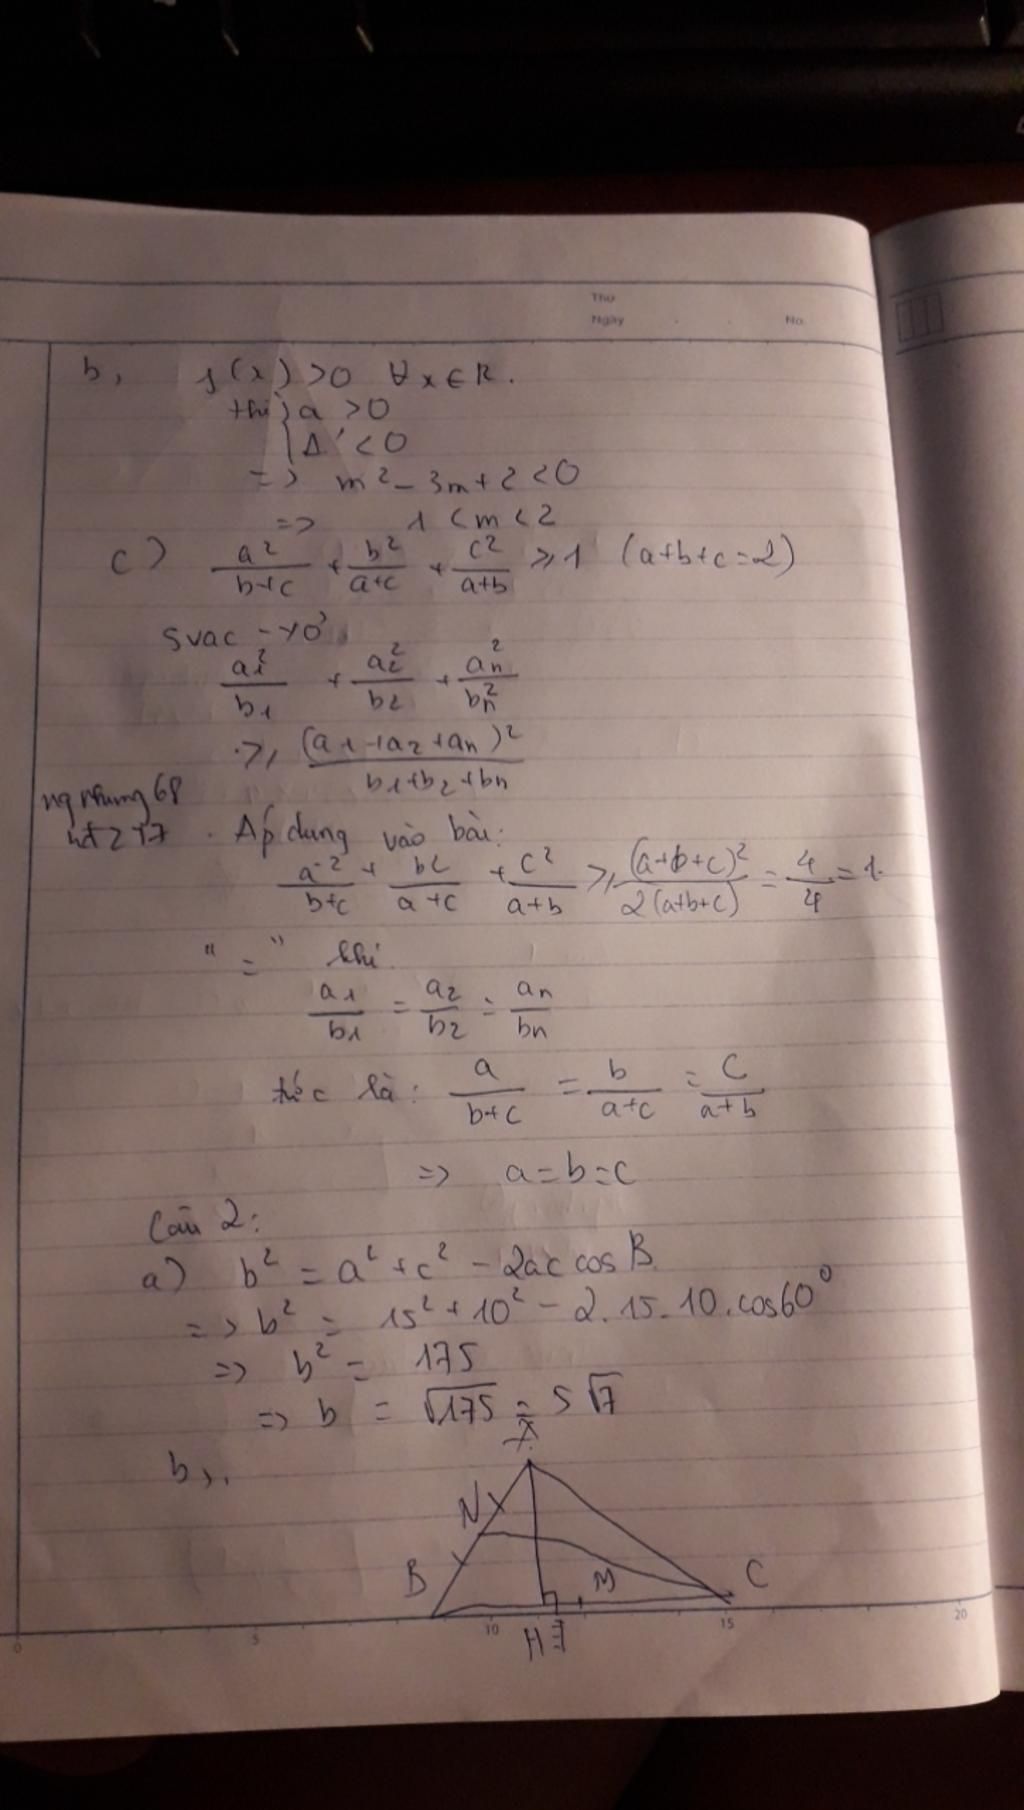 Thứ
Ngày No.
b, f(x) > 0 ∀x ∈ R.
thì { a > 0
{ Δ' < 0
=> m² - 3m + 2 < 0
=> 1 < m < 2
c) a²/(b+c) + b²/(a+c) + c²/(a+b) ≥ 1 (a+b+c=2)
Svac-xơ:
a₁²/b₁ + a₂²/b₂ + aₙ²/bₙ²
≥ (a₁+a₂+aₙ)²/(b₁+b₂+bₙ)
. Áp dụng vào bài:
a²/(b+c) + b²/(a+c) + c²/(a+b) ≥ (a+b+c)²/2(a+b+c) = 4/4 = 1.
"=" khi
a₁/b₁ = a₂/b₂ = aₙ/bₙ
tức là: a/(b+c) = b/(a+c) = c/(a+b)
=> a=b=c
Câu 2:
a) b² = a² + c² - 2ac cos B
=> b² = 15² + 10² - 2.15.10.cos60°
=> b² = 175
=> b = √175 = 5√7
b,.
A
N
B M C
H
0 5 10 15 20